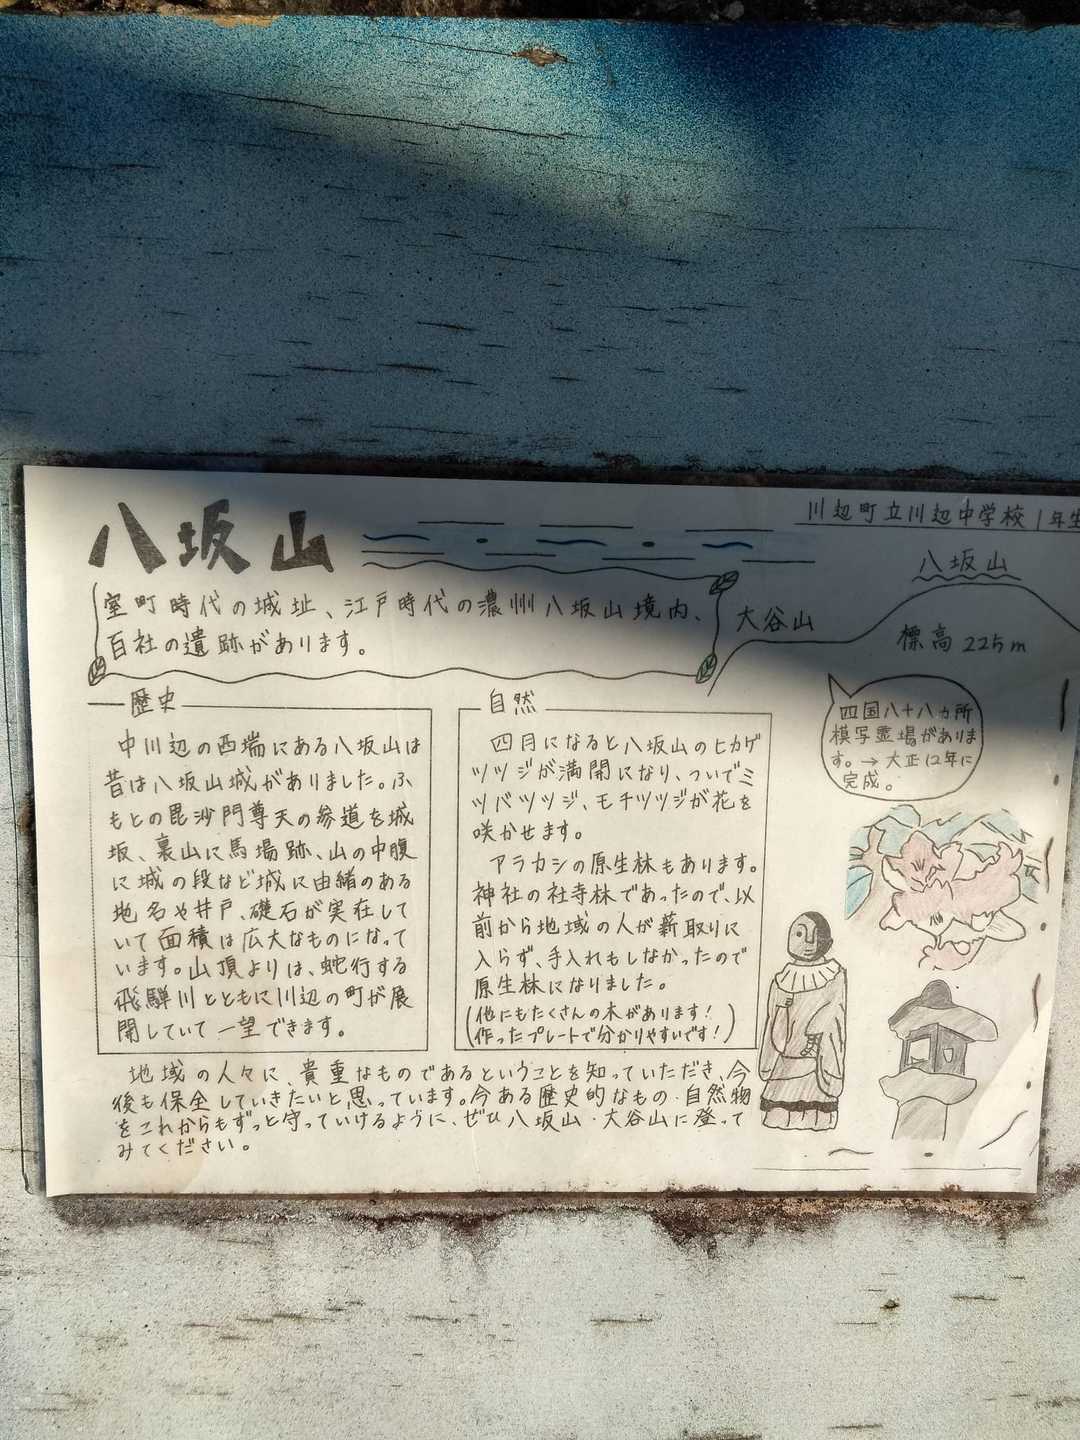 川辺町立川辺中学校1年生
八坂山
室町時代の城址、江戸時代の濃州八坂山境内、
百社の遺跡があります。
大谷山
八坂山
標高225m
四国八十八ヵ所
模写霊場がありま
す。→大正12年に
完成。
歴史
中川辺の西端にある八坂山は
昔は八坂山城がありました。ふ
もとの毘沙門尊天の参道を城
坂、裏山に馬場跡、山の中腹
に城の段など城に由緒のある
地名や井戸、礎石が実在して
いて面積は広大なものになって
います。山頂よりは、蛇行する
飛騨川とともに川辺の町が展
開していて一望できます。
自然
四月になると八坂山のヒカゲ
ツツジが満開になり、ついでミ
ツバツツジ、モチツツジが花を
咲かせます。
アラカシの原生林もあります。
神社の社寺林であったので、以
前から地域の人が薪取りに
入らず、手入れもしなかったので
原生林になりました。
(他にもたくさんの木があります!
作ったプレートで分かりやすいです!)
地域の人々に、貴重なものであるということを知っていただき、今
後も保全していきたいと思っています。今ある歴史的なもの・自然物
をこれからもずっと守っていけるように、ぜひ八坂山・大谷山に登って
みてください。